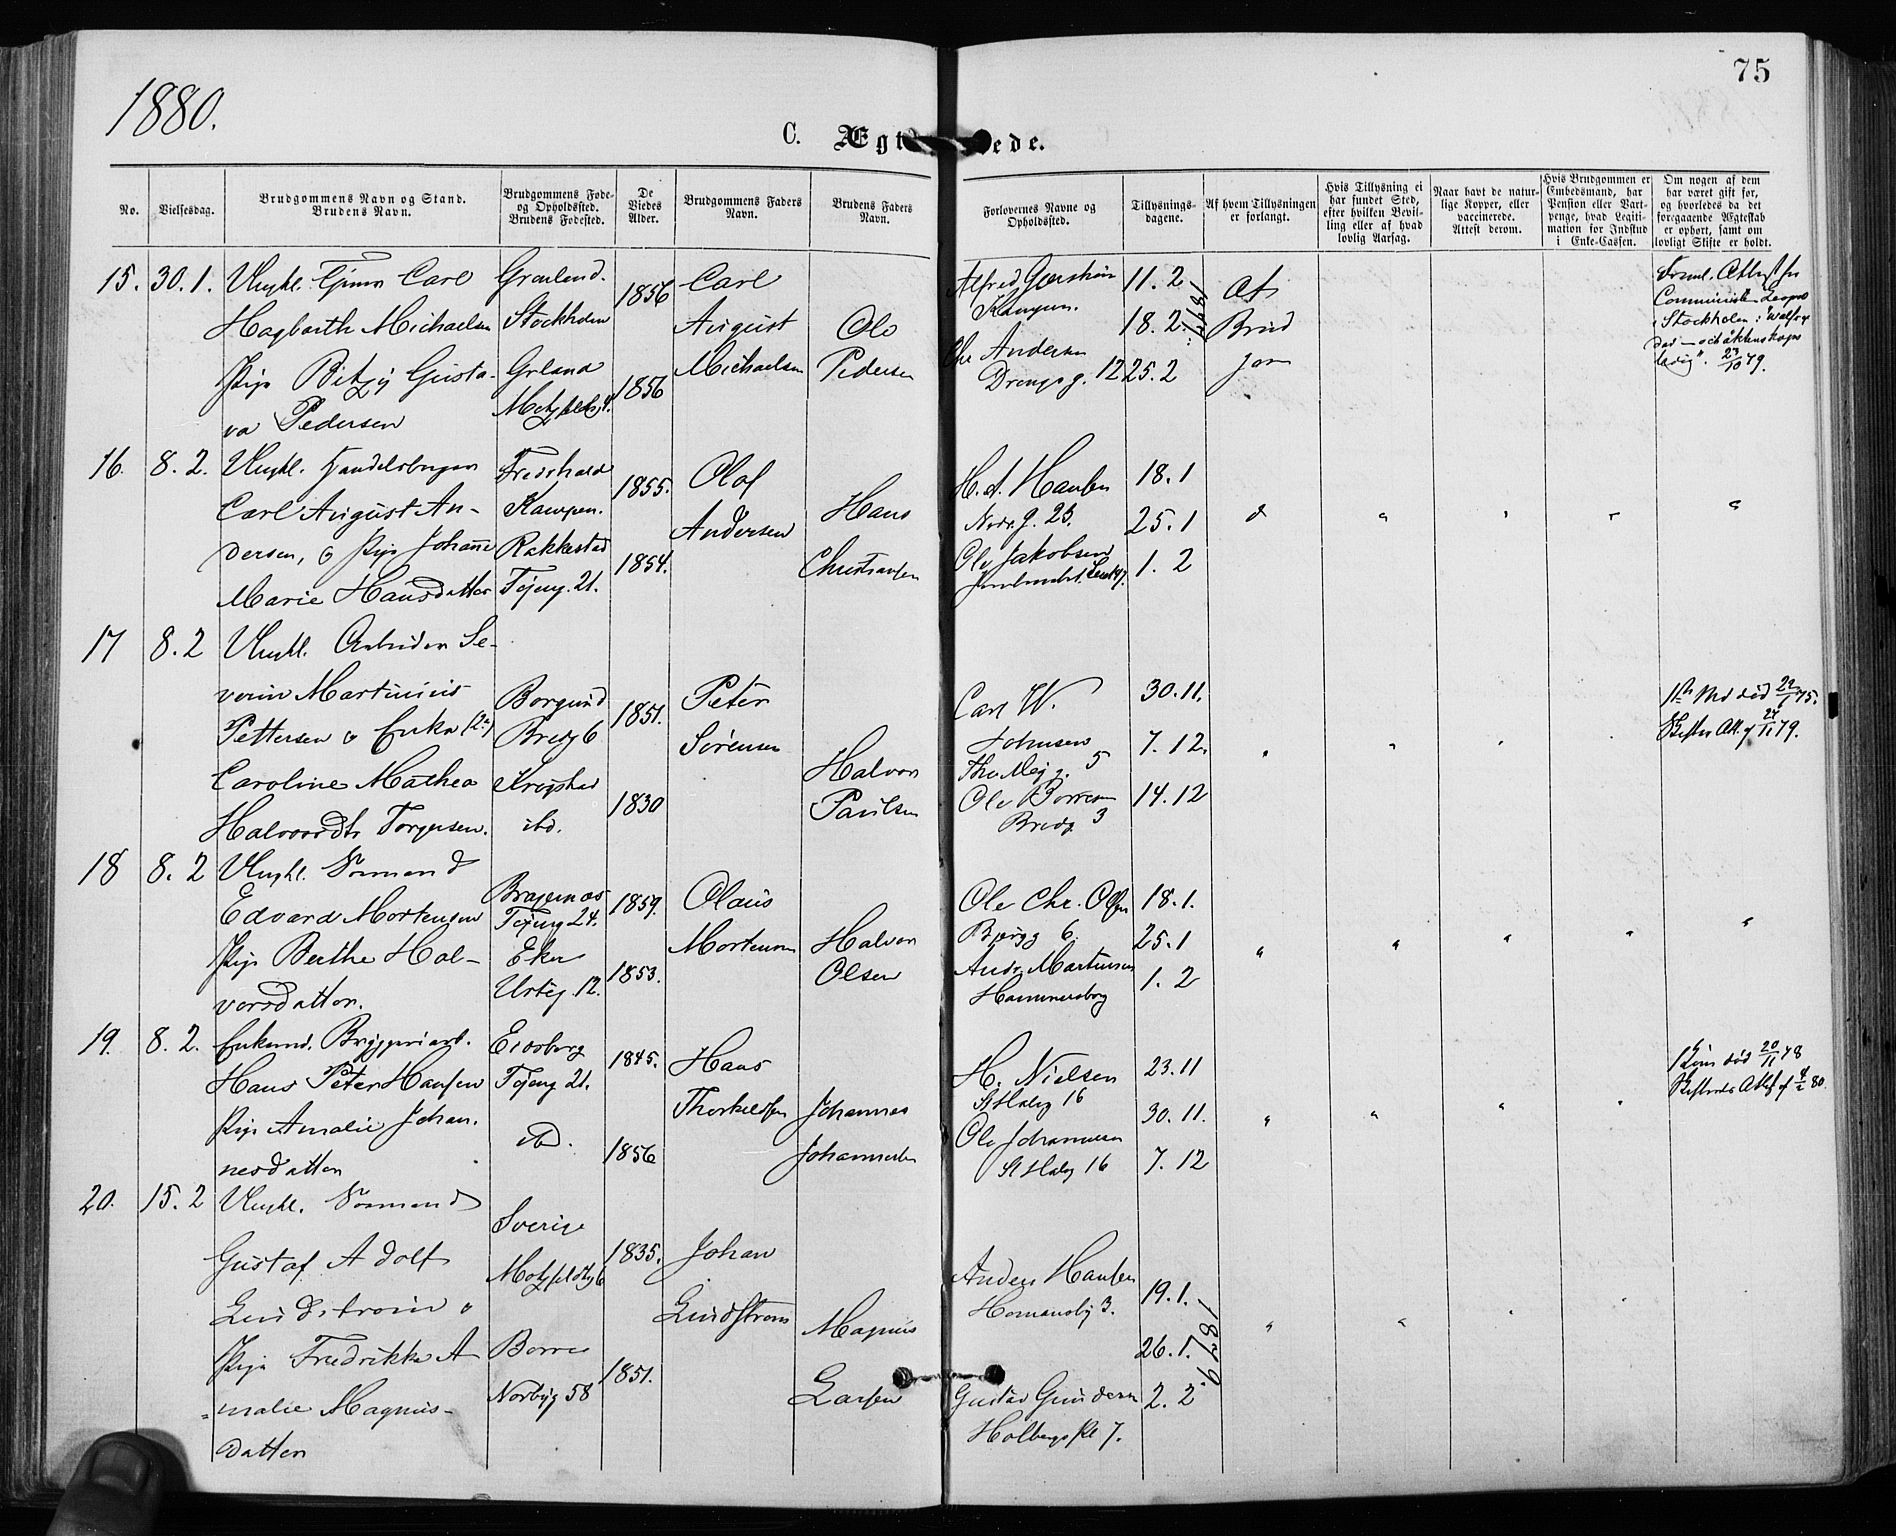 1880.
75
C. Ægt
ede.
No.
Vielsesdag.
Brudgommens Navn og Stand.
Brudens Navn.
Brudgommens Føde-
og Opholdssted.
Brudens Fødested.
De
Viedes
Alder.
Brudgommens Faders
Navn.
Brudens Faders
Navn.
Forlovernes Navne og
Opholdssted.
Tillysnings-
dagene.
Af hvem Tillysningen
er forlangt.
Hvis Tillysning ei
har fundet Sted,
efter hvilken Bevil-
ling eller af hvad
lovlig Aarsag.
Naar havt de natur-
lige Kopper, eller
vaccinerede.
Attest derom.
Hvis Brudgommen er
Embedsmand, har
Pension eller Vart-
penge, hvad Legiti-
mation for Indskud
i Enke-Cassen.
Om nogen af dem
har været gift før,
og hvorledes da det
foregaaende Ægteskab
er ophørt, samt om
lovligt Skifte er holdt.
15. 30. 1. Ungkl. Carl
Hagbarth Michaelsen
Pige Betzy Gusta-
va Pedersen
Grønland.
Stockholm
Grland
1856
1856
Carl
August
Michaelsen
Ole
Pedersen
Alfred
Kampen.
Chr Andersen
Drengs g. 12
11. 2
18. 2
25. 2
1879
Af
Brud
Stockholm
23/10 79.
16. 8. 2. Ungkl.
Carl August An-
dersen, o Pige Johanne
Marie Hansdatter
Fredrhald
Kampen.
Rakkestad
Tøjeng. 21.
1855.
1854.
Olaf
Andersen
Hans
Christiansen
H. A. Hansen
g. 23.
Ole Jakobsen
18. 1
25. 1
1. 2
17 8. 2 Ungkl. Arbeider Se-
verin Martinius
Pettersen o Enke (2)
Caroline Mathea
Halvorsdtr Torgersen.
Borgund
Bredg 6
Krogstad
ibd.
1851.
1830
Peter
Sørensen
Halvor
Paulsen
Carl W.
Johnsen
Thv Meyg. 5
Ole
Bredg 3
30. 11.
7. 12.
14. 12
75.
79.
18 8. 2 Ungkl. Sømand
Edvard Mortensen
Pige Berthe Hal-
vorsdatter.
Bragernæs
Tøjeng 24.
Eker
Urteg. 12.
1859.
1853.
Olaus
Mortensen
Halvor
Olsen
Ole Chr. Olsen
Bergg 6.
Andr. Martinsen
Hammersborg
18. 1.
25. 1
1. 2
19. 8. 2. Enkemd. Bryggeriarb.
Hans Peter Hansen
Pige Amalie Johan.
nesdatter
Eidsberg
Tøjeng 21.
ibd.
1845.
1856
Hans
Thorkildsen
Johannes
Johannesen
H. Nielsen
St Halvg 16
Ole Johannesen
St Halvg 16
23. 11
30. 11.
7. 12
død 20/11 78
80.
20. 15. 2 Ungkl. Sømand
Gustaf Adolf
Lindstrøm o
Pige Fredrikke A
=malie Magnus-
datter
Sverige
Motzfeldtsg 6
Borre
Norbyg 58
1835.
1851.
Johan
Lindstrøm
Magnus
Larsen
Anders Hansen
Homansby 3.
Gustav Gundersen
Holbergs Pl 7.
19. 1.
26. 1.
2. 2
1879